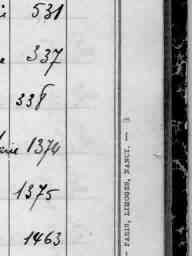 531
337
338
1374
1375
1463
— PARIS, LIMOGES, NANCY. —